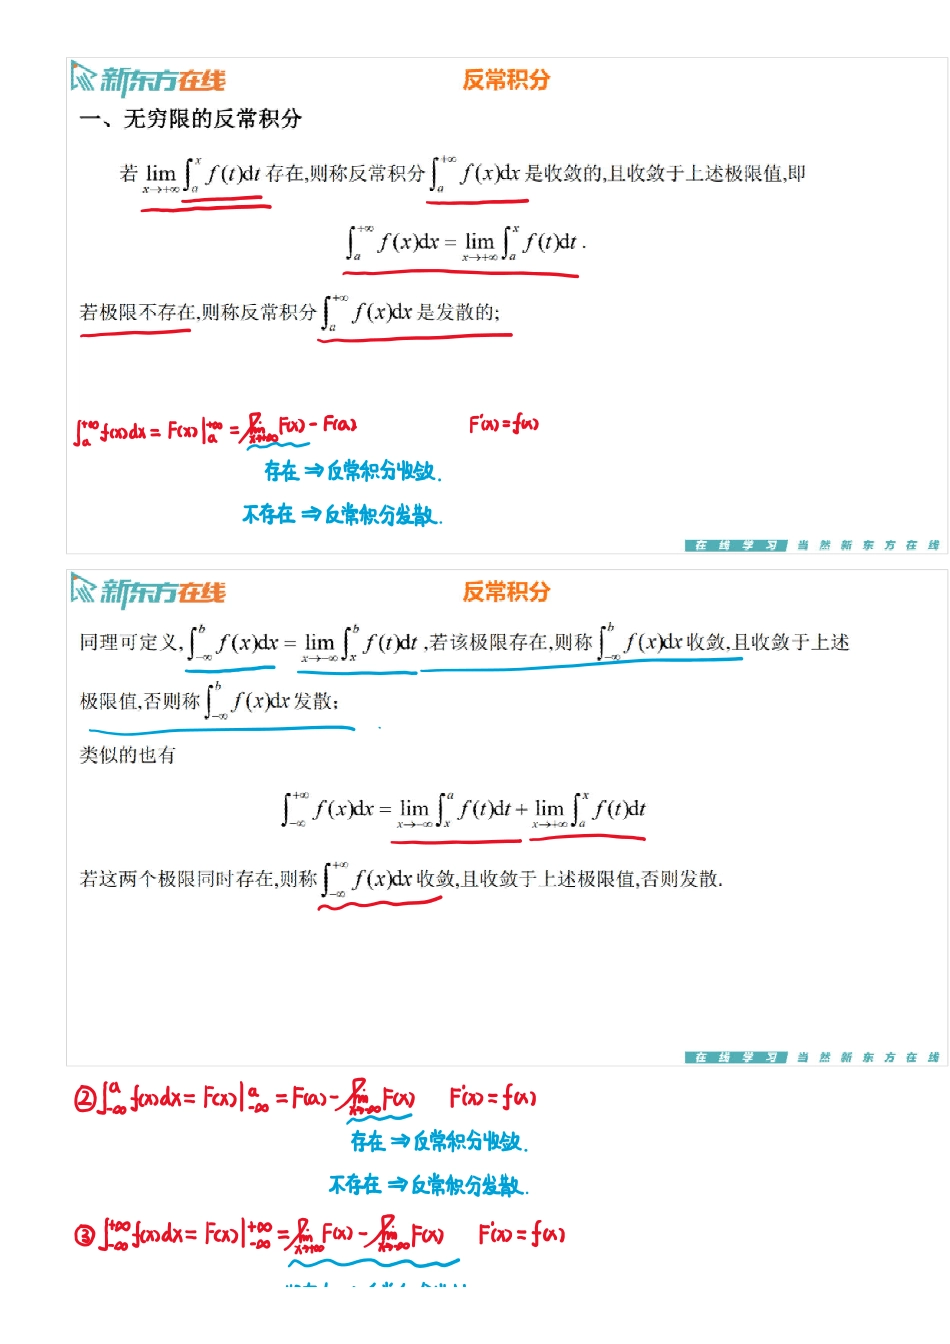 新东方在线
反常积分
一、无穷限的反常积分
若 lim_{x→+∞} ∫_a^x f(t)dt 存在,则称反常积分 ∫_a^{+∞} f(x)dx 是收敛的,且收敛于上述极限值,即
∫_a^{+∞} f(x)dx = lim_{x→+∞} ∫_a^x f(t)dt .
若极限不存在,则称反常积分 ∫_a^{+∞} f(x)dx 是发散的;
∫_a^{+∞} f(x)dx = F(x)|_a^{+∞} = lim_{x→+∞} F(x) - F(a) F'(x) = f(x)
存在 ⇒ 反常积分收敛.
不存在 ⇒ 反常积分发散.
在线学习 当然新东方在线
新东方在线
反常积分
同理可定义, ∫_{-∞}^b f(x)dx = lim_{x→-∞} ∫_x^b f(t)dt ,若该极限存在,则称 ∫_{-∞}^b f(x)dx 收敛,且收敛于上述
极限值,否则称 ∫_{-∞}^b f(x)dx 发散;
类似的也有
∫_{-∞}^{+∞} f(x)dx = lim_{x→-∞} ∫_x^a f(t)dt + lim_{x→+∞} ∫_a^x f(t)dt
若这两个极限同时存在,则称 ∫_{-∞}^{+∞} f(x)dx 收敛,且收敛于上述极限值,否则发散.
在线学习 当然新东方在线
② ∫_{-∞}^a f(x)dx = F(x)|_{-∞}^a = F(a) - lim_{x→-∞} F(x) F'(x) = f(x)
存在 ⇒ 反常积分收敛.
不存在 ⇒ 反常积分发散.
③ ∫_{-∞}^{+∞} f(x)dx = F(x)|_{-∞}^{+∞} = lim_{x→+∞} F(x) - lim_{x→-∞} F(x) F'(x) = f(x)